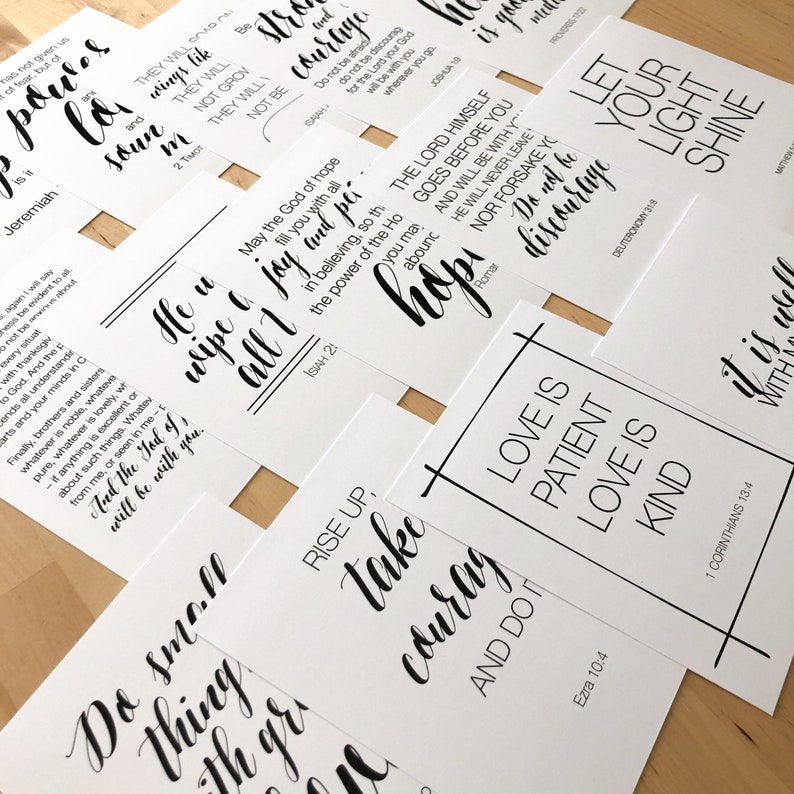 has not given us
of fear, but of
power
and
lo
and
soun
m
2 TIMOT
is in
Jeremiah
THEY WILL SOAR ON
wings like
THEY WILL
NOT GROW
THEY WILL
NOT BE
ISAIAH
Be
strong
and
courage
Do not be afraid
do not be discourag
for the Lord your God
will be with you
wherever you go.
JOSHUA 1:9
is good
medi
PROVERBS 17:22
LET
YOUR
LIGHT
SHINE
MATTHEW 5
THE LORD HIMSELF
GOES BEFORE YOU
AND WILL BE WITH YO
HE WILL NEVER LEAVE
NOR FORSAKE YO
Do not be
discourage
DEUTERONOMY 31:8
May the God of hope
fill you with all
joy and pe
in believing. So th
the power of the Ho
you may
abound
hop
Romar
He w
wipe a
all t
ISIAH 25
again I will say
ness be evident to all.
o not be anxious about
every situat
with thanksgiv
to God. And the p
ends all understandi
arts and your minds in C
Finally, brothers and sisters
whatever is noble, whateve
pure, whatever is lovely, wh
– if anything is excellent or
about such things. Whateve
from me, or seen in me –
And the God of
will be with you.
it is well
WITH MY
LOVE IS
PATIENT
LOVE IS
KIND
1 CORINTHIANS 13:4
RISE UP,
take
courag
AND DO IT
Ezra 10:4
Do small
thing
with gre